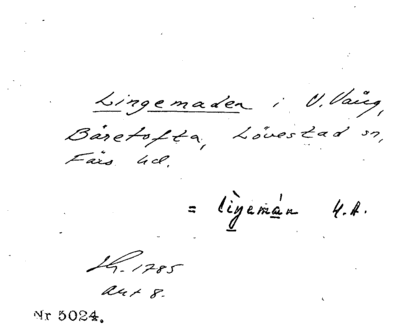 Lingemaden i V. Vång,
Båretofta, Lövestad sn,
Färs hd.
= lìŋemán U.A.
Sk. 1785
akt 8.
Nr 5024.